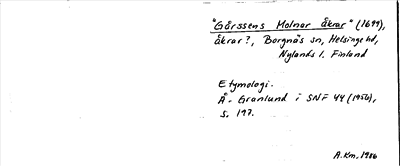 "Gårssens Molnar åkrar" (1699),
åkrar?, Borgnäs sn, Helsinge hd,
Nylands l. Finland
Etymologi.
Å. Granlund i SNF 44 (1956),
s. 197.
A.Km. 1986